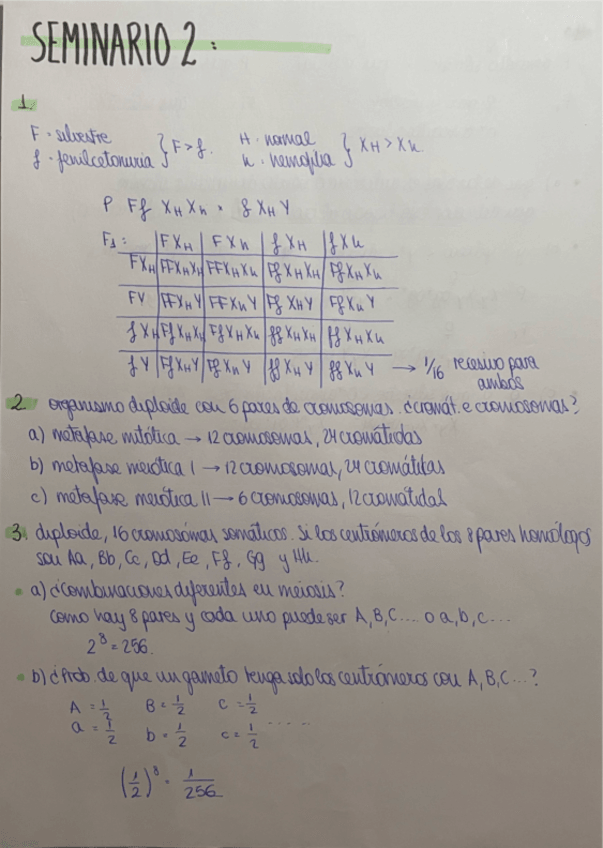 SEMINARIO 2:
1.
F · silvestre } F > f. H · normal } XH > Xh
f · fenilcetonuria h · hemofilia
P Ff XH Xh · f XH Y
F1: FXH FXh fXH fXh
FXH FFXHXH FFXHXh FfXHXH FfXHXh
FY FFXHY FFXhY FfXHY FfXhY
fXH FfXHXH FfXHXh ffXHXH ffXHXh
fY FfXHY FfXhY ffXHY ffXhY → 1/16 recesivo para
ambos
2 organismo diploide con 6 pares de cromosomas. ¿cromát. e cromosomas?
a) metafase mitótica → 12 cromosomas, 24 cromátidas
b) metafase meiótica I → 12 cromosomas, 24 cromátidas
c) metafase meiótica II → 6 cromosomas, 12 cromátidas
3. diploide, 16 cromosomas somáticos. Si los centrómeros de los 8 pares homólogos
son Aa, Bb, Cc, Dd, Ee, Ff, Gg y Hh.
a) ¿Combinaciones diferentes en meiosis?
como hay 8 pares y cada uno puede ser A, B, C.... o a, b, c...
2⁸ = 256.
b) ¿Prob. de que un gameto tenga solo los centrómeros con A, B, C...?
A = 1/2 B = 1/2 C = 1/2
a = 1/2 b = 1/2 c = 1/2 .....
(1/2)⁸ = 1/256